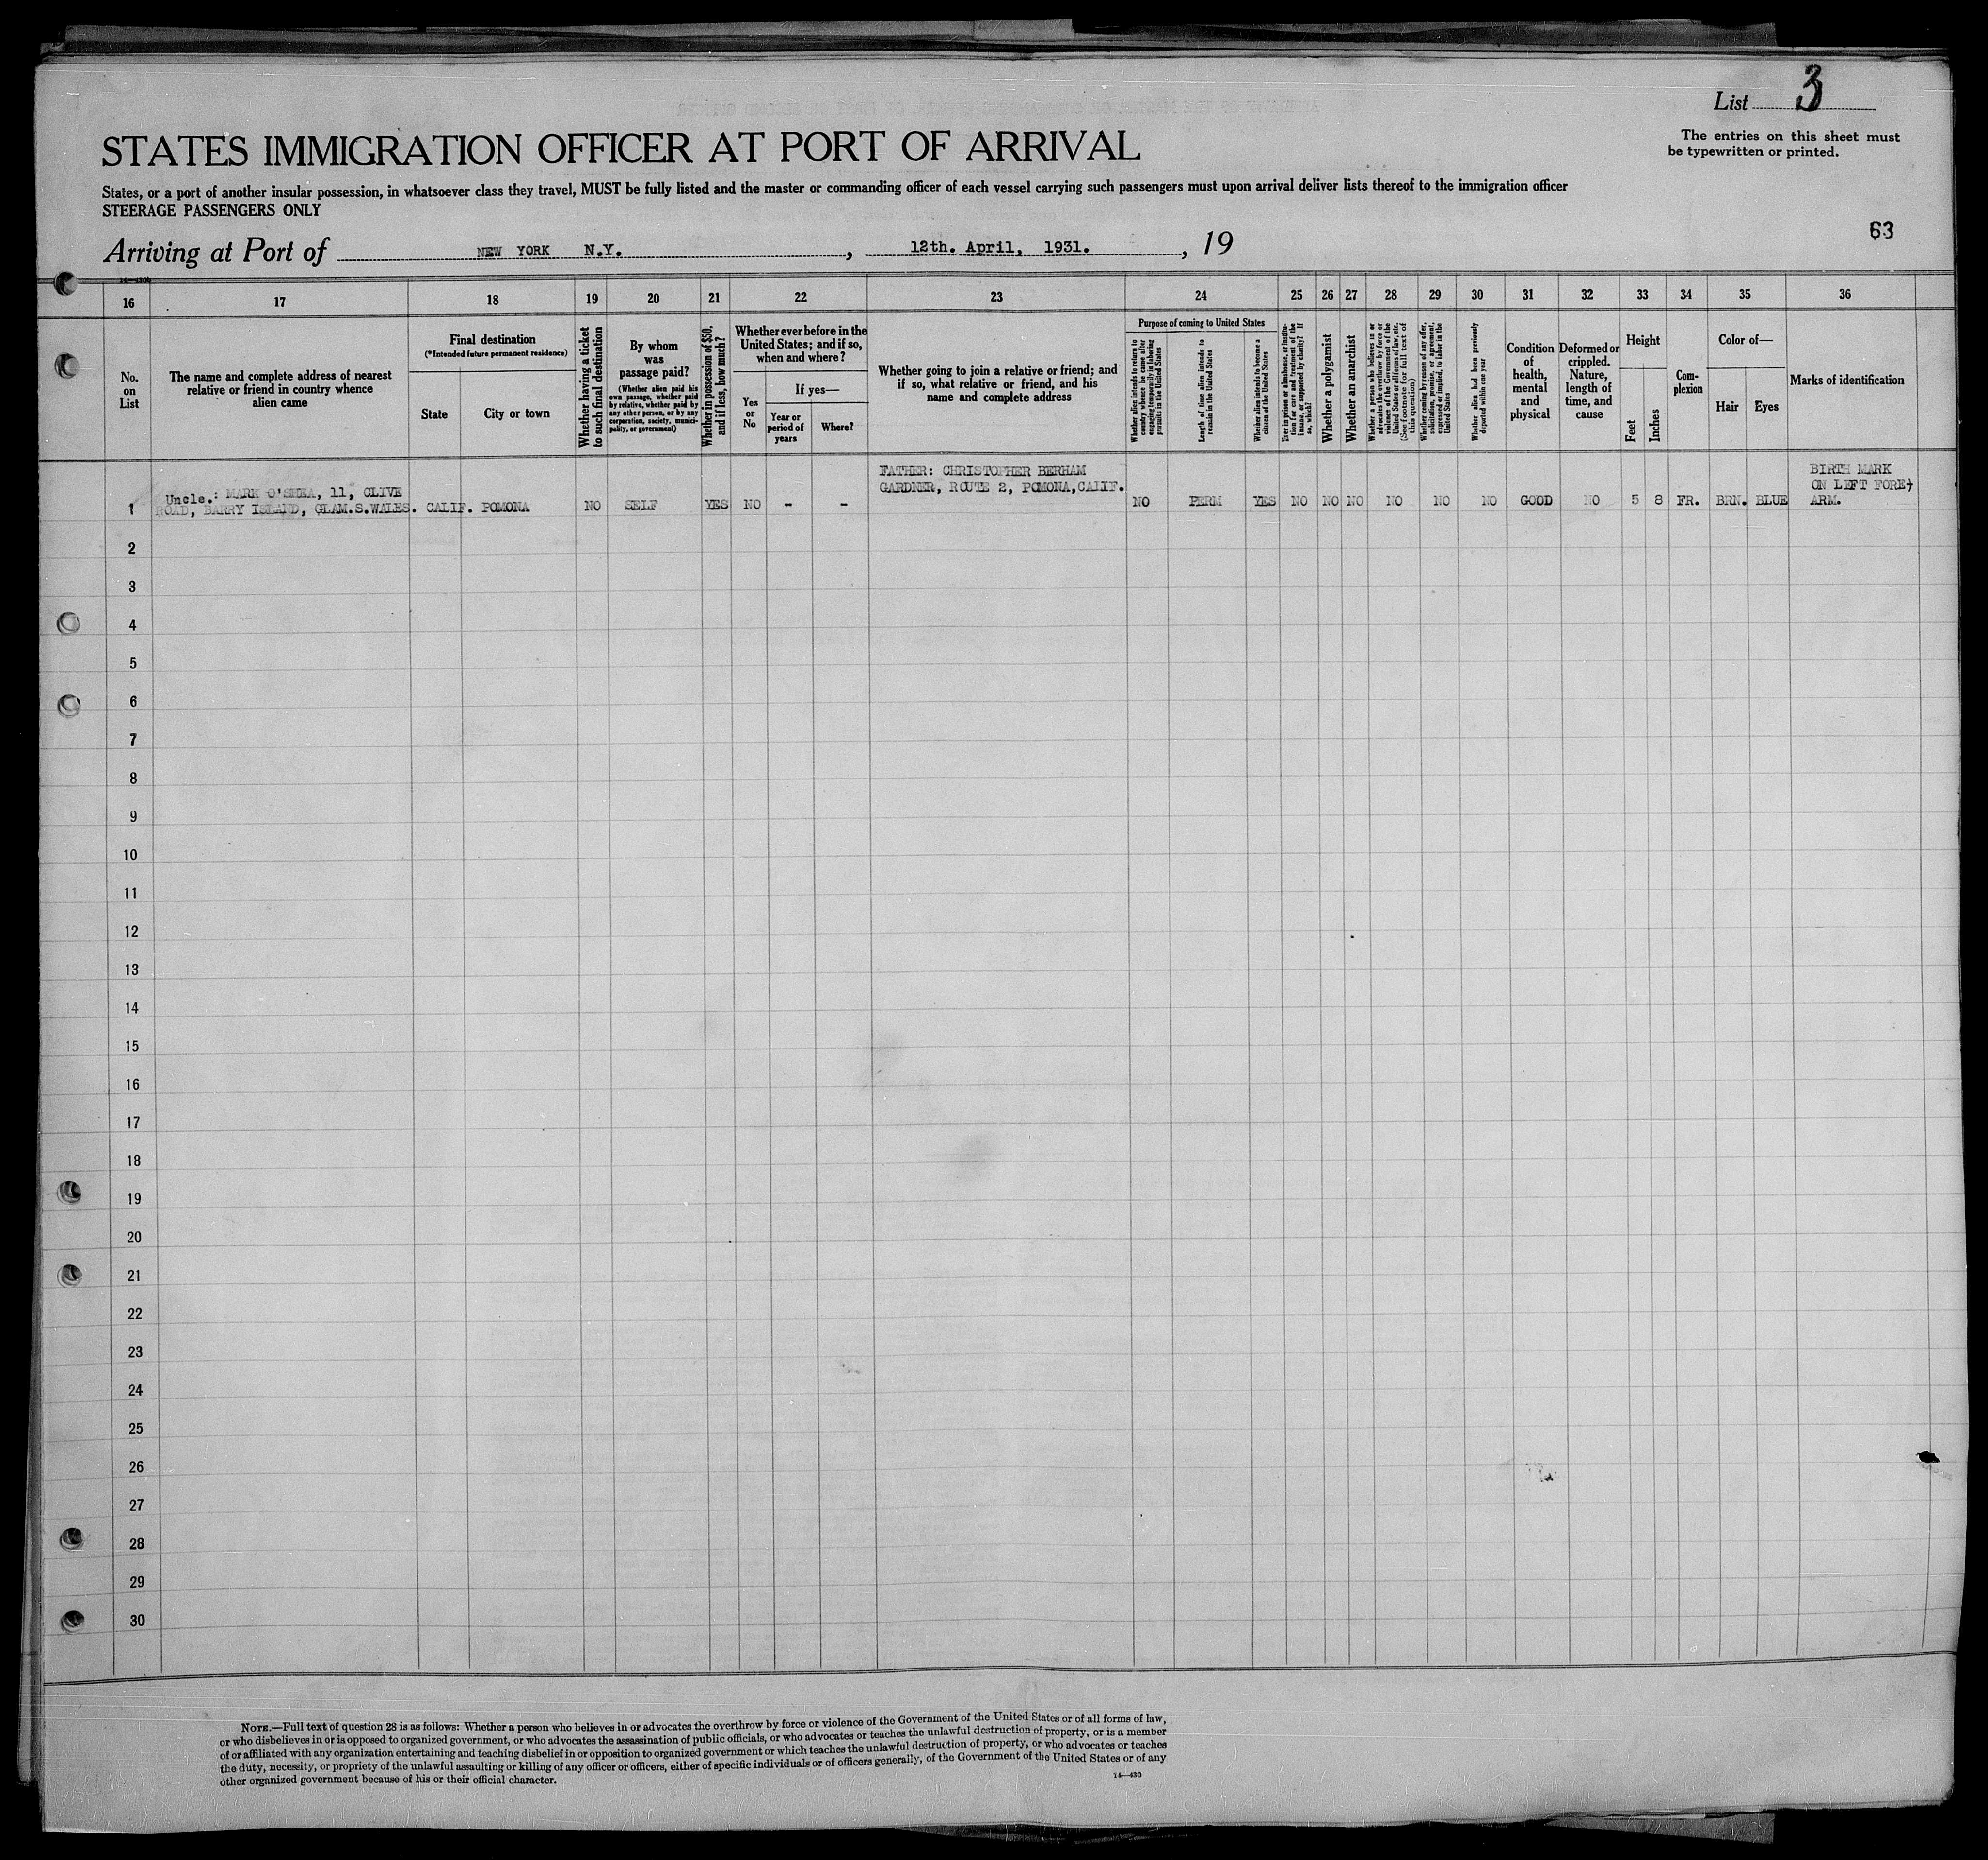 List 3
The entries on this sheet must
be typewritten or printed.
STATES IMMIGRATION OFFICER AT PORT OF ARRIVAL
States, or a port of another insular possession, in whatsoever class they travel, MUST be fully listed and the master or commanding officer of each vessel carrying such passengers must upon arrival deliver lists thereof to the immigration officer
STEERAGE PASSENGERS ONLY
63
Arriving at Port of NEW YORK N.Y., 12th. April, 1931., 19
14—430
16 17 18 19 20 21 22 23 24 25 26 27 28 29 30 31 32 33 34 35 36
No.
on
List
The name and complete address of nearest
relative or friend in country whence
alien came
Final destination
(*Intended future permanent residence)
State
City or town
Whether having a ticket
to such final destination
By whom
was
passage paid?
(Whether alien paid his
own passage, whether paid
by relative, whether paid by
any other person, or by any
corporation, society, munici-
pality, or government)
Whether in possession of $50,
and if less, how much?
Whether ever before in the
United States; and if so,
when and where?
Yes
or
No
If yes—
Year or
period of
years
Where?
Whether going to join a relative or friend; and
if so, what relative or friend, and his
name and complete address
Purpose of coming to United States
Whether alien intends to return to
country whence he came after
engaging temporarily in laboring
pursuits in the United States
Length of time alien intends to
remain in the United States
Whether alien intends to become a
citizen of the United States
Ever in prison or almshouse, or institu-
tion for care and treatment of the
insane, or supported by charity? If
so, which?
Whether a polygamist
Whether an anarchist
Whether a person who believes in or
advocates the overthrow by force or
violence of the Government of the
United States or all forms of law, etc.
(See footnote for full text of
this question)
Whether coming by reason of any offer,
solicitation, promise, or agreement,
expressed or implied, to labor in the
United States
Whether alien had been previously
deported within one year
Condition
of
health,
mental
and
physical
Deformed or
crippled.
Nature,
length of
time, and
cause
Height
Feet
Inches
Com-
plexion
Color of—
Hair
Eyes
Marks of identification
1
Uncle.: MARK O'SHEA, 11, CLIVE
ROAD, BARRY ISLAND, GLAM.S.WALES.
CALIF. POMONA NO SELF YES NO - -
FATHER: CHRISTOPHER BERHAM
GARDNER, ROUTE 2, POMONA,CALIF.
NO PERM YES NO NO NO NO NO NO GOOD NO 5 8 FR. BRN. BLUE
BIRTH MARK
ON LEFT FORE-
ARM.
2
3
4
5
6
7
8
9
10
11
12
13
14
15
16
17
18
19
20
21
22
23
24
25
26
27
28
29
30
NOTE.—Full text of question 28 is as follows: Whether a person who believes in or advocates the overthrow by force or violence of the Government of the United States or of all forms of law,
or who disbelieves in or is opposed to organized government, or who advocates the assassination of public officials, or who advocates or teaches the unlawful destruction of property, or is a member
of or affiliated with any organization entertaining and teaching disbelief in or opposition to organized government or which teaches the unlawful destruction of property, or who advocates or teaches
the duty, necessity, or propriety of the unlawful assaulting or killing of any officer or officers, either of specific individuals or of officers generally, of the Government of the United States or of any
other organized government because of his or their official character.
14—430